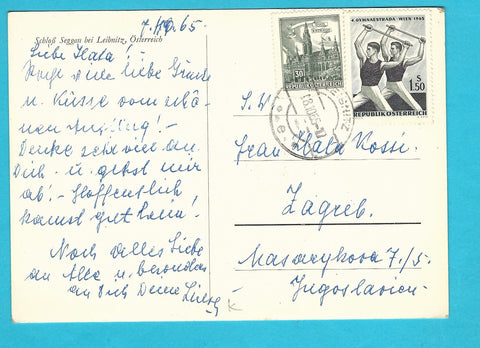 7. 10. 65
Schloß Seggau bei Leibnitz, Österreich
Liebe Hala!
viele liebe Grüsse
u. Küsse vom schö-
nen Ausflug! -
Denke sehr viel an
Dich - u. gehst mir
ab! - Hoffentlich
kamst gut heim!
Noch alles Liebe
an Alle u. besonders
an Dich Deine
30
REPUBLIK ÖSTERREICH
4. GYMNAESTRADA WIEN 1965
S
1.50
REPUBLIK ÖSTERREICH
S. W.
Frau Hala Kossi.
Zagreb.
Masarykova 7./5.
Jugoslavien.-